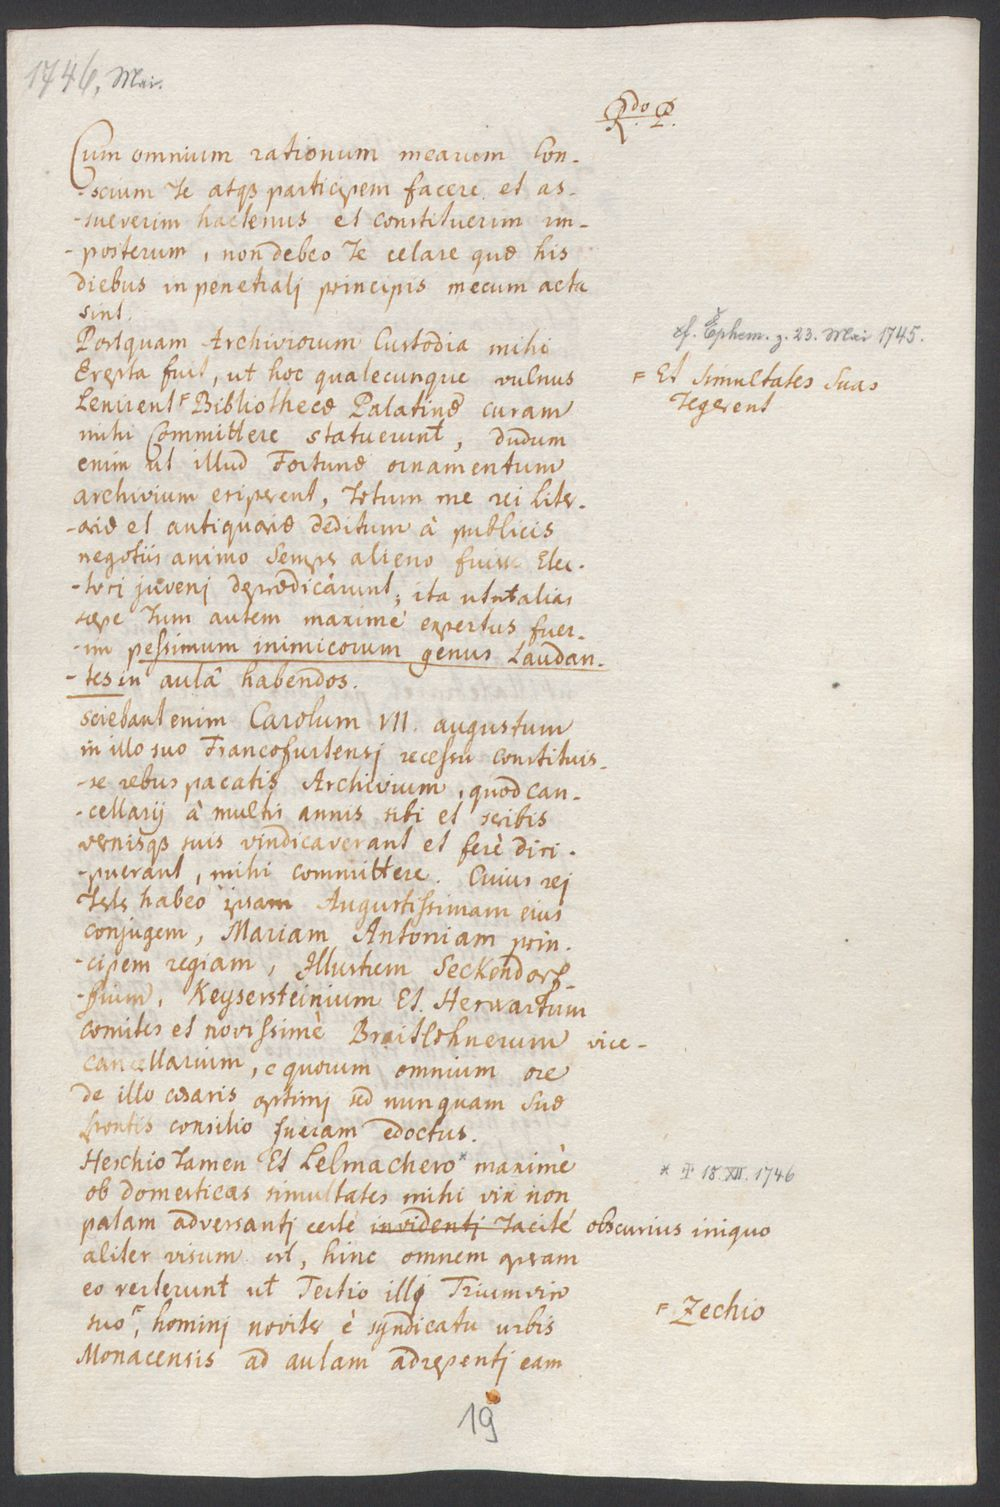 1746, Mai.
Rdo P.
Cum omnium rationum mearum Con-
-scium Te atqs participem facere et as-
-sueverim hactenus et constituerim im-
-posterum, non debeo Te celare quæ his
diebus in penetralj principis mecum acta
sint.
Postquam Archiviorum Custodia mihi
Erepta fuit, ut hoc qualecunque vulnus
Lenirent F Bibliothecæ Palatinæ curam
mihi Committere statuerunt, dudum
enim ut illud Fortunæ ornamentum
archivium eriperent, Totum me rei liter-
-ariæ et antiquariæ deditum à publicis
negotiis animo semper alieno fuisse Elec-
-tori juvenj deprædicarunt; ita ut alias
sæpe Tum autem maximè expertus fuer-
-im pessimum inimicorum genus Laudan-
-tes in aulâ habendos.
Sciebant enim Carolum VII. augustum
in illo suo Francofurtensj recessu constituis-
-se rebus pacatis Archivium, quod can-
-cellarij à multis annis sibi et scribis
vernisqs suis vindicaverant et ferè diri-
-puerant, mihi committere. Cuius rej
Teste habeo ipsam Augustissimam eius
conjugem, Mariam Antoniam prin-
-cipem regiam, Illustrem Seckendorf-
-fium, Keysersteinium Et Herwartum
comites et novissimè Braitlohnerum vice-
cancellarium, e quorum omnium ore
de illo cæsaris optimj sed nunquam suæ
frontis consilio fueram edoctus.
Heschio Tamen Et Lelmachero* maximè
ob domesticas simultates mihi vix non
palam adversantj certè invidentj Tacitè obscurius iniquo
aliter visum est, hinc omnem operam
eo verterunt ut Tertio illj Triumviro
suo F, hominj noviter è syndicatu urbis
Monacensis ad aulam adrepentj eam
cf. Ephem. z. 23. Mai 1745.
F Et simultates suas
Tegerent
* † 18. XII. 1746
F Zechio
19